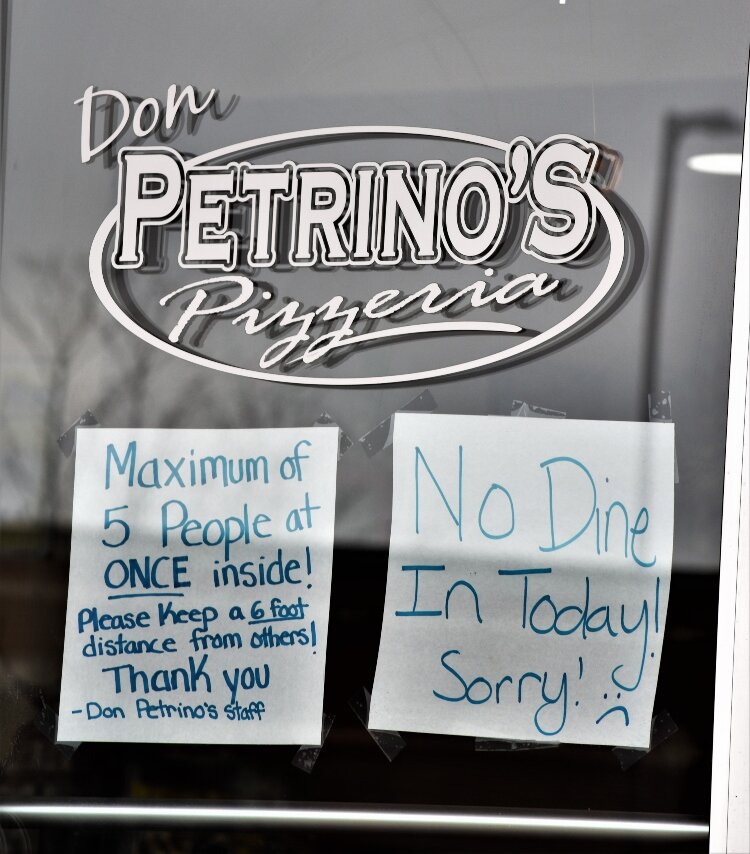 Don
PETRINO'S
Pizzeria
Maximum of
5 People at
ONCE inside!
Please Keep a 6 foot
distance from others!
Thank you
- Don Petrino's staff
No Dine
In Today!
Sorry! :(